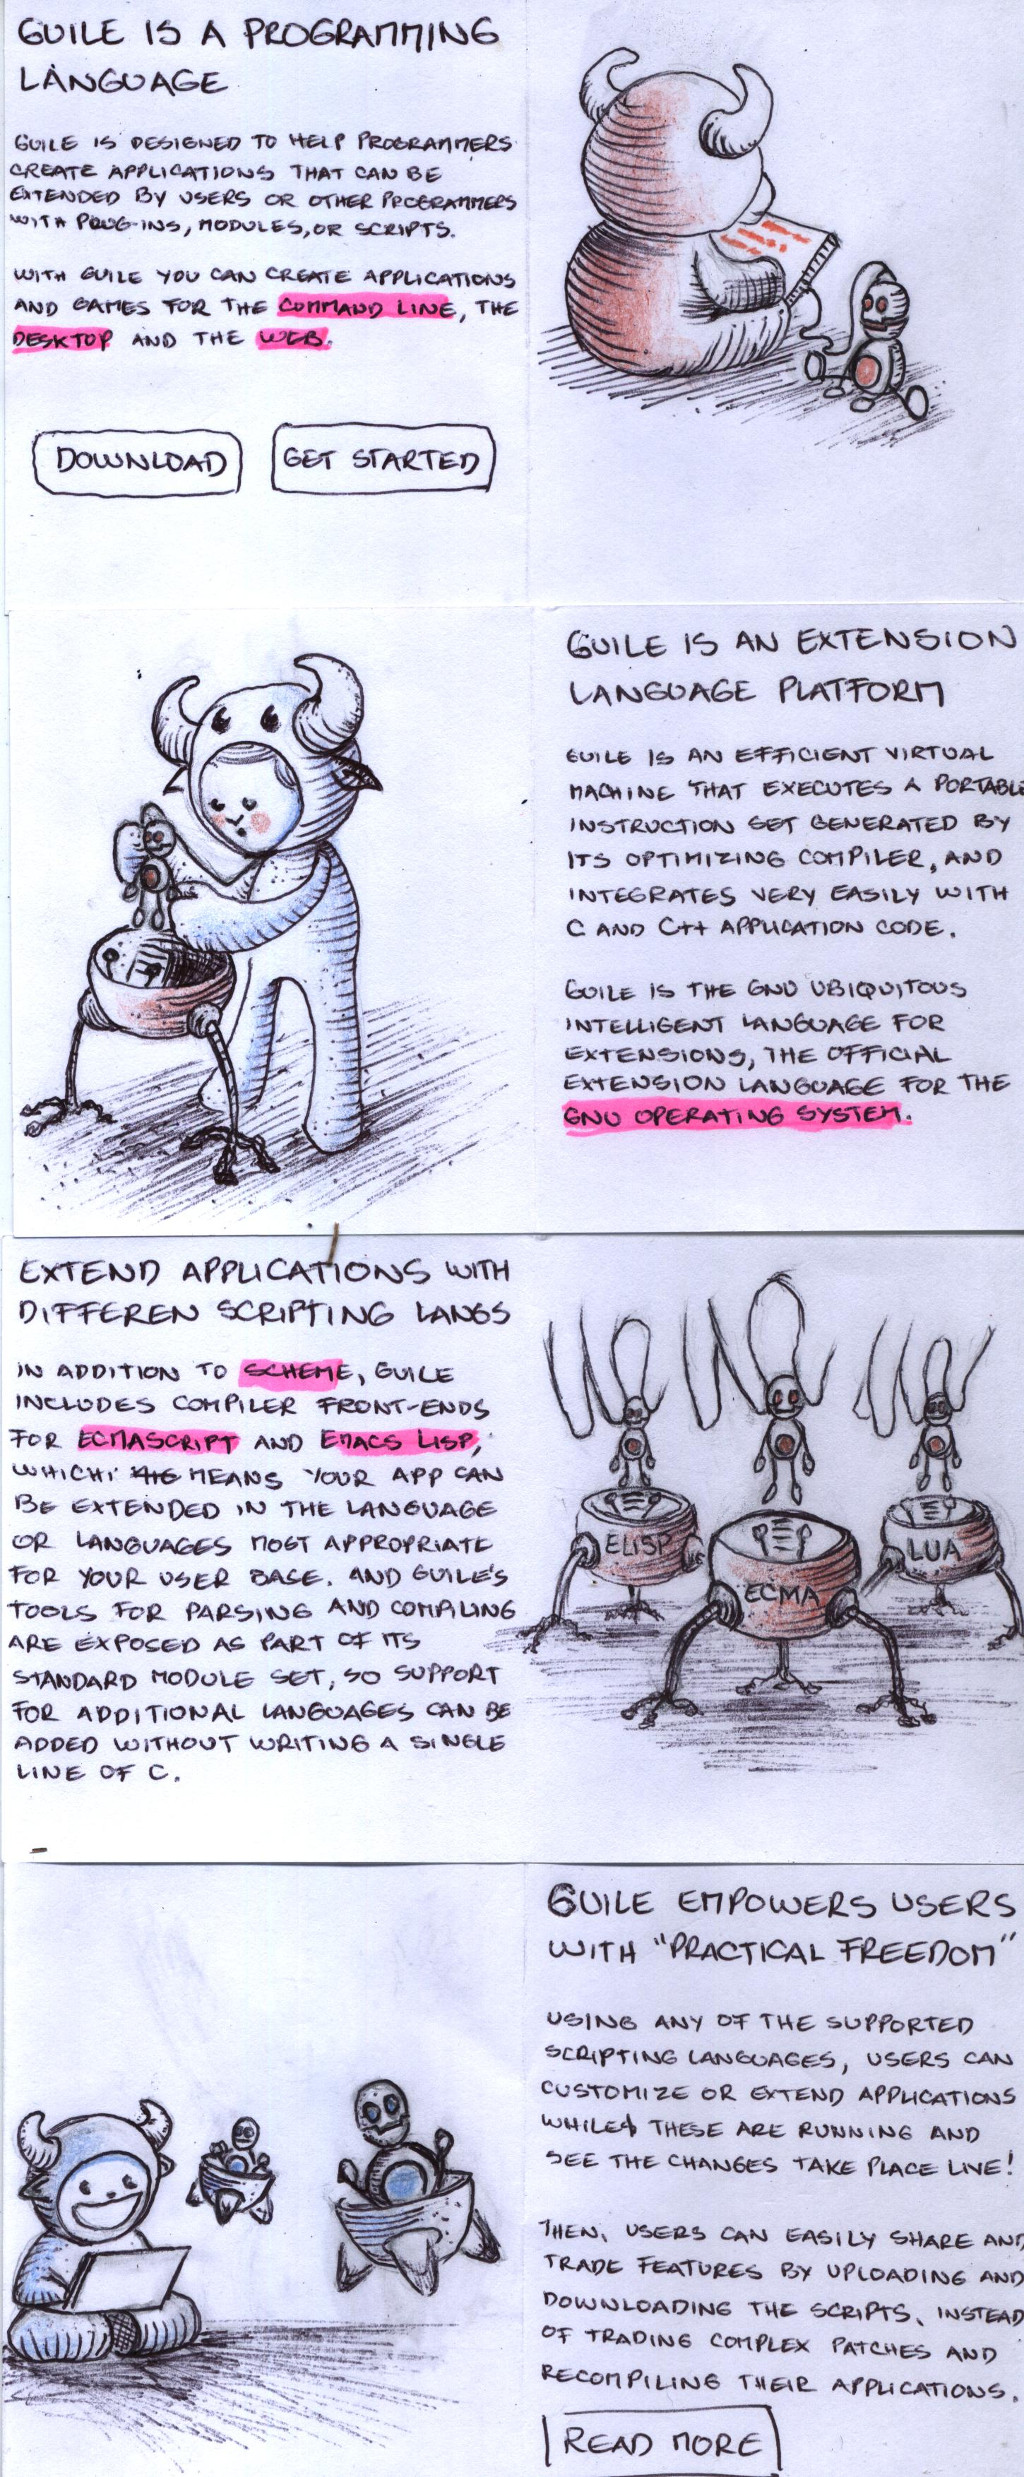 GUILE IS A PROGRAMMING
LANGUAGE
GUILE IS DESIGNED TO HELP PROGRAMMERS
CREATE APPLICATIONS THAT CAN BE
EXTENDED BY USERS OR OTHER PROGRAMMERS
WITH PLUG-INS, MODULES, OR SCRIPTS.
WITH GUILE YOU CAN CREATE APPLICATIONS
AND GAMES FOR THE COMMAND LINE, THE
DESKTOP AND THE WEB.
DOWNLOAD
GET STARTED
GUILE IS AN EXTENSION
LANGUAGE PLATFORM
GUILE IS AN EFFICIENT VIRTUAL
MACHINE THAT EXECUTES A PORTABLE
INSTRUCTION SET GENERATED BY
ITS OPTIMIZING COMPILER, AND
INTEGRATES VERY EASILY WITH
C AND C++ APPLICATION CODE.
GUILE IS THE GNU UBIQUITOUS
INTELLIGENT LANGUAGE FOR
EXTENSIONS, THE OFFICIAL
EXTENSION LANGUAGE FOR THE
GNU OPERATING SYSTEM.
EXTEND APPLICATIONS WITH
DIFFEREN SCRIPTING LANGS
IN ADDITION TO SCHEME, GUILE
INCLUDES COMPILER FRONT-ENDS
FOR ECMASCRIPT AND EMACS LISP,
WHICH MEANS YOUR APP CAN
BE EXTENDED IN THE LANGUAGE
OR LANGUAGES MOST APPROPRIATE
FOR YOUR USER BASE. AND GUILE'S
TOOLS FOR PARSING AND COMPILING
ARE EXPOSED AS PART OF ITS
STANDARD MODULE SET, SO SUPPORT
FOR ADDITIONAL LANGUAGES CAN BE
ADDED WITHOUT WRITING A SINGLE
LINE OF C.
ELISP
ECMA
LUA
GUILE EMPOWERS USERS
WITH "PRACTICAL FREEDOM"
USING ANY OF THE SUPPORTED
SCRIPTING LANGUAGES, USERS CAN
CUSTOMIZE OR EXTEND APPLICATIONS
WHILE THESE ARE RUNNING AND
SEE THE CHANGES TAKE PLACE LIVE!
THEN, USERS CAN EASILY SHARE AND
TRADE FEATURES BY UPLOADING AND
DOWNLOADING THE SCRIPTS, INSTEAD
OF TRADING COMPLEX PATCHES AND
RECOMPILING THEIR APPLICATIONS.
READ MORE